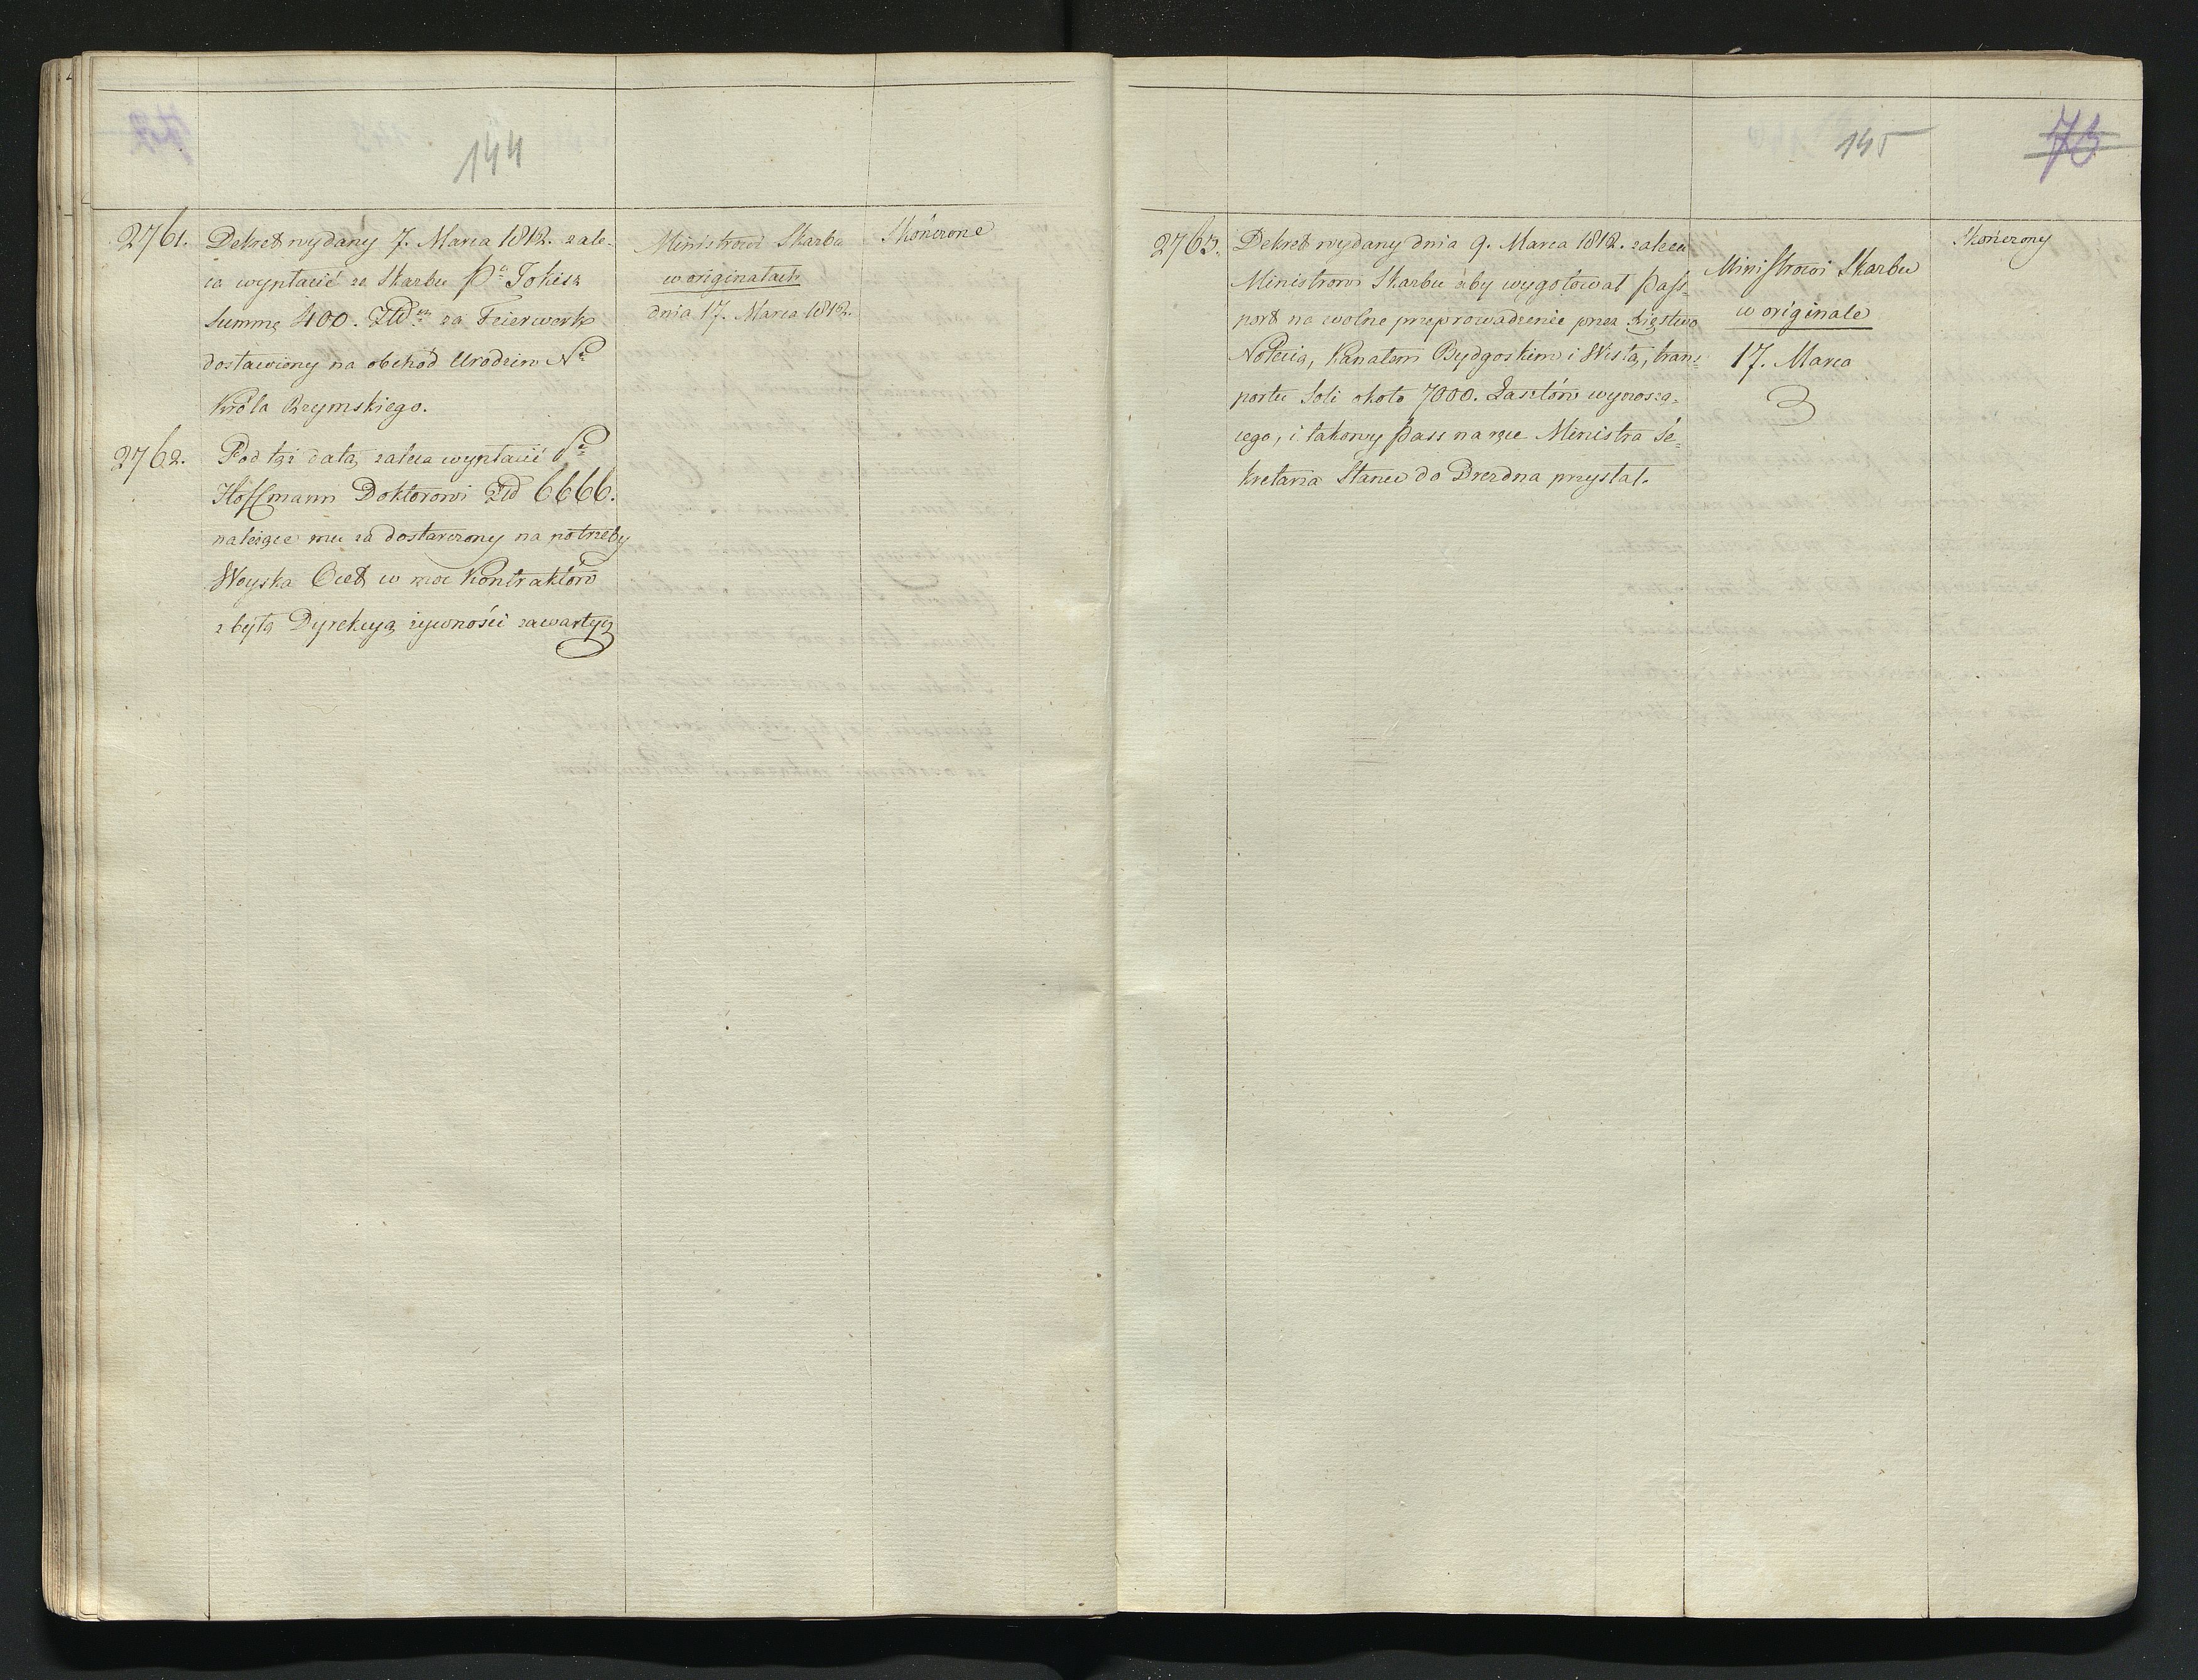 144
2761. Dekret wydany 7. Marca 1812. zale-
ca wypłacić ze Skarbu Pu Jokisz
Summę 400. Złłch za Feierwerk
dostawiony na obchód Urodzin
Króla Rzymskiego.
Ministrowi Skarbu
w originałach
dnia 17. Marca 1812.
Skończone
2762. Pod tąż datą zaleca wypłacić Pu
Hoffmann Doktorowi Złł 6666.
należące mu za dostarczony na potrzeby
Woyska Ocet w moc Kontraktów
z byłą Dyrekcyą żywności zawartych
145
73
2763. Dekret wydany dnia 9. Marca 1812. zaleca
Ministrowi Skarbu aby wygotował pass-
port na wolne przeprowadzenie przez Xięstwo
Notecią, Kanałem Bydgoskim i Wisłą, trans-
portu Soli około 7000. Łasztów wynoszą-
cego, i takowy pass na ręce Ministra Se-
kretarza Stanu do Drezdna przysłał.
Ministrowi Skarbu
w originale
17. Marca
Skończony